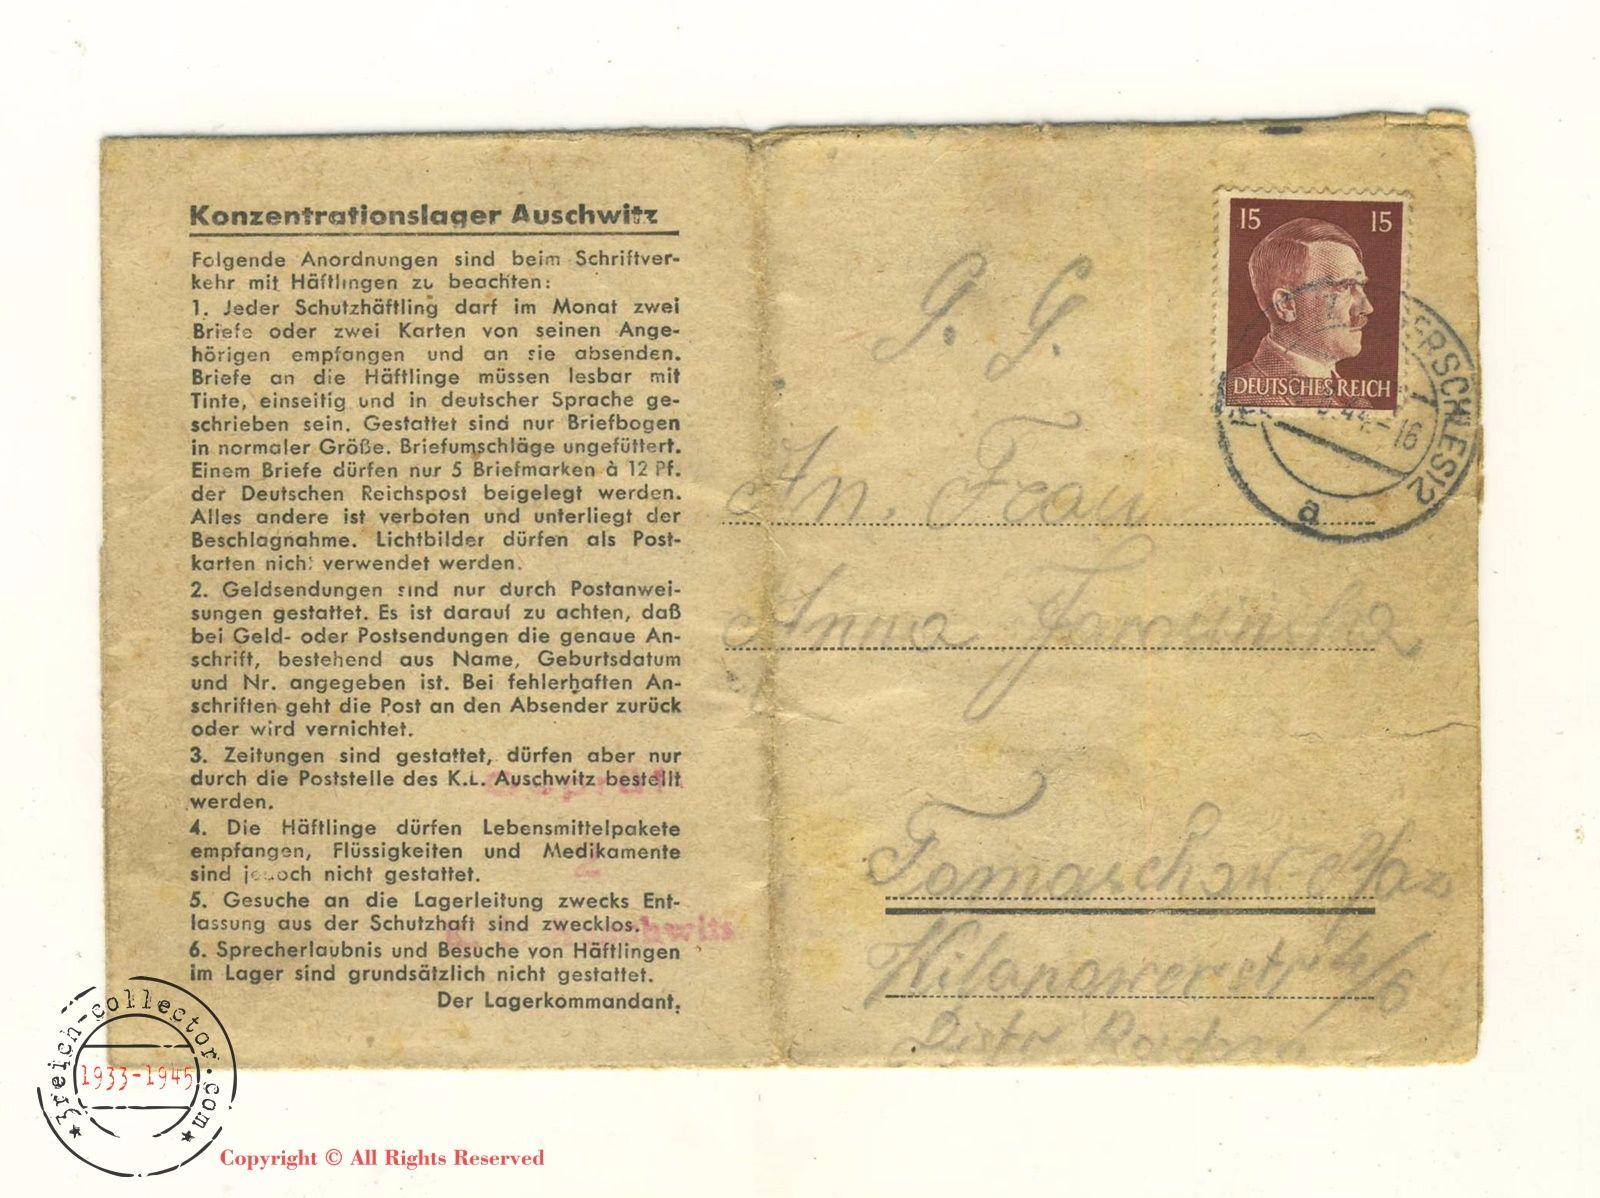 Konzentrationslager Auschwitz
Folgende Anordnungen sind beim Schriftver-
kehr mit Häftlingen zu beachten:
1. Jeder Schutzhäftling darf im Monat zwei
Briefe oder zwei Karten von seinen Ange-
hörigen empfangen und an sie absenden.
Briefe an die Häftlinge müssen lesbar mit
Tinte, einseitig und in deutscher Sprache ge-
schrieben sein. Gestattet sind nur Briefbogen
in normaler Größe. Briefumschläge ungefüttert.
Einem Briefe dürfen nur 5 Briefmarken à 12 Pf.
der Deutschen Reichspost beigelegt werden.
Alles andere ist verboten und unterliegt der
Beschlagnahme. Lichtbilder dürfen als Post-
karten nicht verwendet werden.
2. Geldsendungen sind nur durch Postanwei-
sungen gestattet. Es ist darauf zu achten, daß
bei Geld- oder Postsendungen die genaue An-
schrift, bestehend aus Name, Geburtsdatum
und Nr. angegeben ist. Bei fehlerhaften An-
schriften geht die Post an den Absender zurück
oder wird vernichtet.
3. Zeitungen sind gestattet, dürfen aber nur
durch die Poststelle des K.L. Auschwitz bestellt
werden.
4. Die Häftlinge dürfen Lebensmittelpakete
empfangen, Flüssigkeiten und Medikamente
sind jedoch nicht gestattet.
5. Gesuche an die Lagerleitung zwecks Ent-
lassung aus der Schutzhaft sind zwecklos.
6. Sprecherlaubnis und Besuche von Häftlingen
im Lager sind grundsätzlich nicht gestattet.
Der Lagerkommandant.
15 15
DEUTSCHES REICH
44-16
a
G. G.
An. Frau
Anna
Tomaschow-Maz
Wilanowerstr 4/6
Distr Radom
3reich-collector.com
1933-1945
Copyright © All Rights Reserved